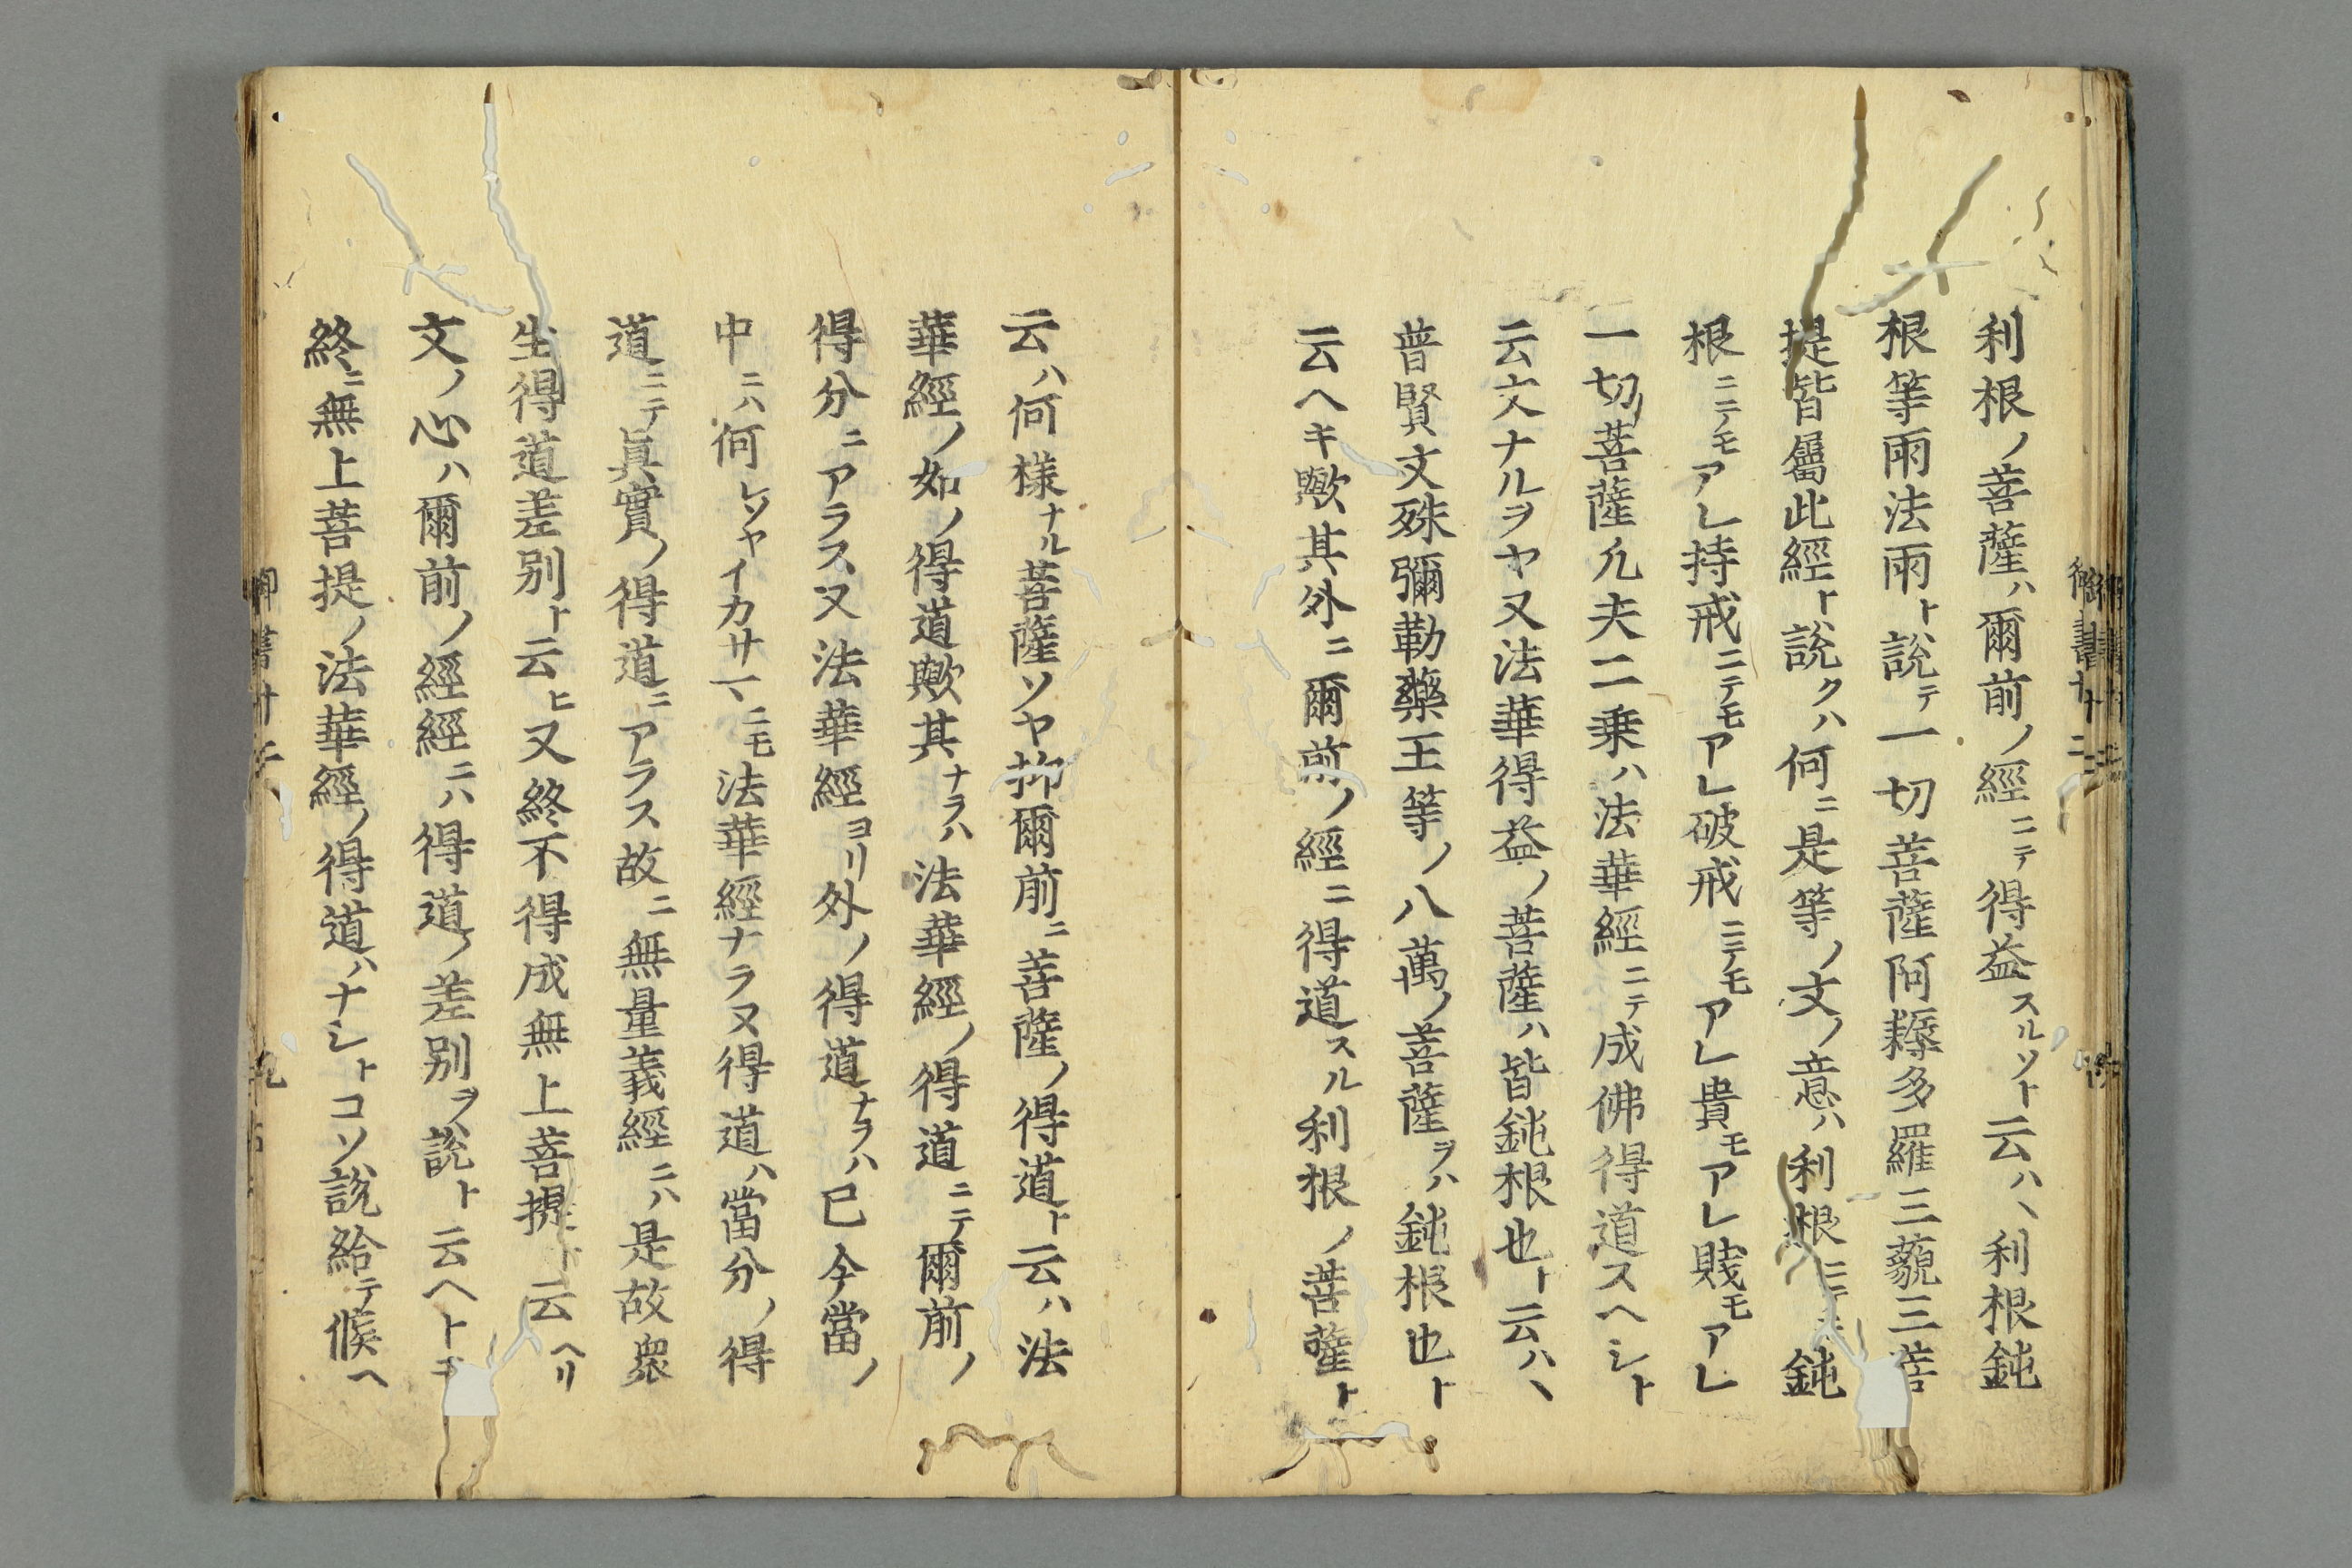 利根ノ菩薩ハ爾前ノ經ニテ得益スルソト云ハヽ利根鈍
根等雨法雨ト說テ一切菩薩阿耨多羅三藐三菩
提皆屬此經ト說クハ何ニ是等ノ文ノ意ハ利根ニテモ鈍
根ニテモアレ持戒ニテモアレ破戒ニテモアレ貴モアレ賤モアレ
一切ノ菩薩凡夫二乗ハ法華經ニテ成佛得道スヘシト
云文ナルヲヤ又法華得益ノ菩薩ハ皆鈍根也ト云ハヽ
普賢文殊彌勒藥王等ノ八萬ノ菩薩ヲハ鈍根也ト
云ヘキ歟其外ニ爾前ノ經ニ得道スル利根ノ菩薩ト
云ハ何樣ナル菩薩ソヤ抑爾前ニ菩薩ノ得道ト云ハ法
華經ノ如ノ得道歟其ナラハ法華經ノ得道ニテ爾前ノ
得分ニアラス又法華經ヨリ外ノ得道ナラハ已今當ノ
中ニハ何レソヤイカサマニモ法華經ナラヌ得道ハ當分ノ得
道ニテ眞實ノ得道ニアラス故ニ無量義經ニハ是故衆
生得道差別ト云ヒ又終不得成無上菩提ト云ヘリ
文ノ心ハ爾前ノ經經ニハ得道ノ差別ヲ說ト云ヘトモ
終ニ無上菩提ノ法華經ノ得道ハナシトコソ說給テ候ヘ